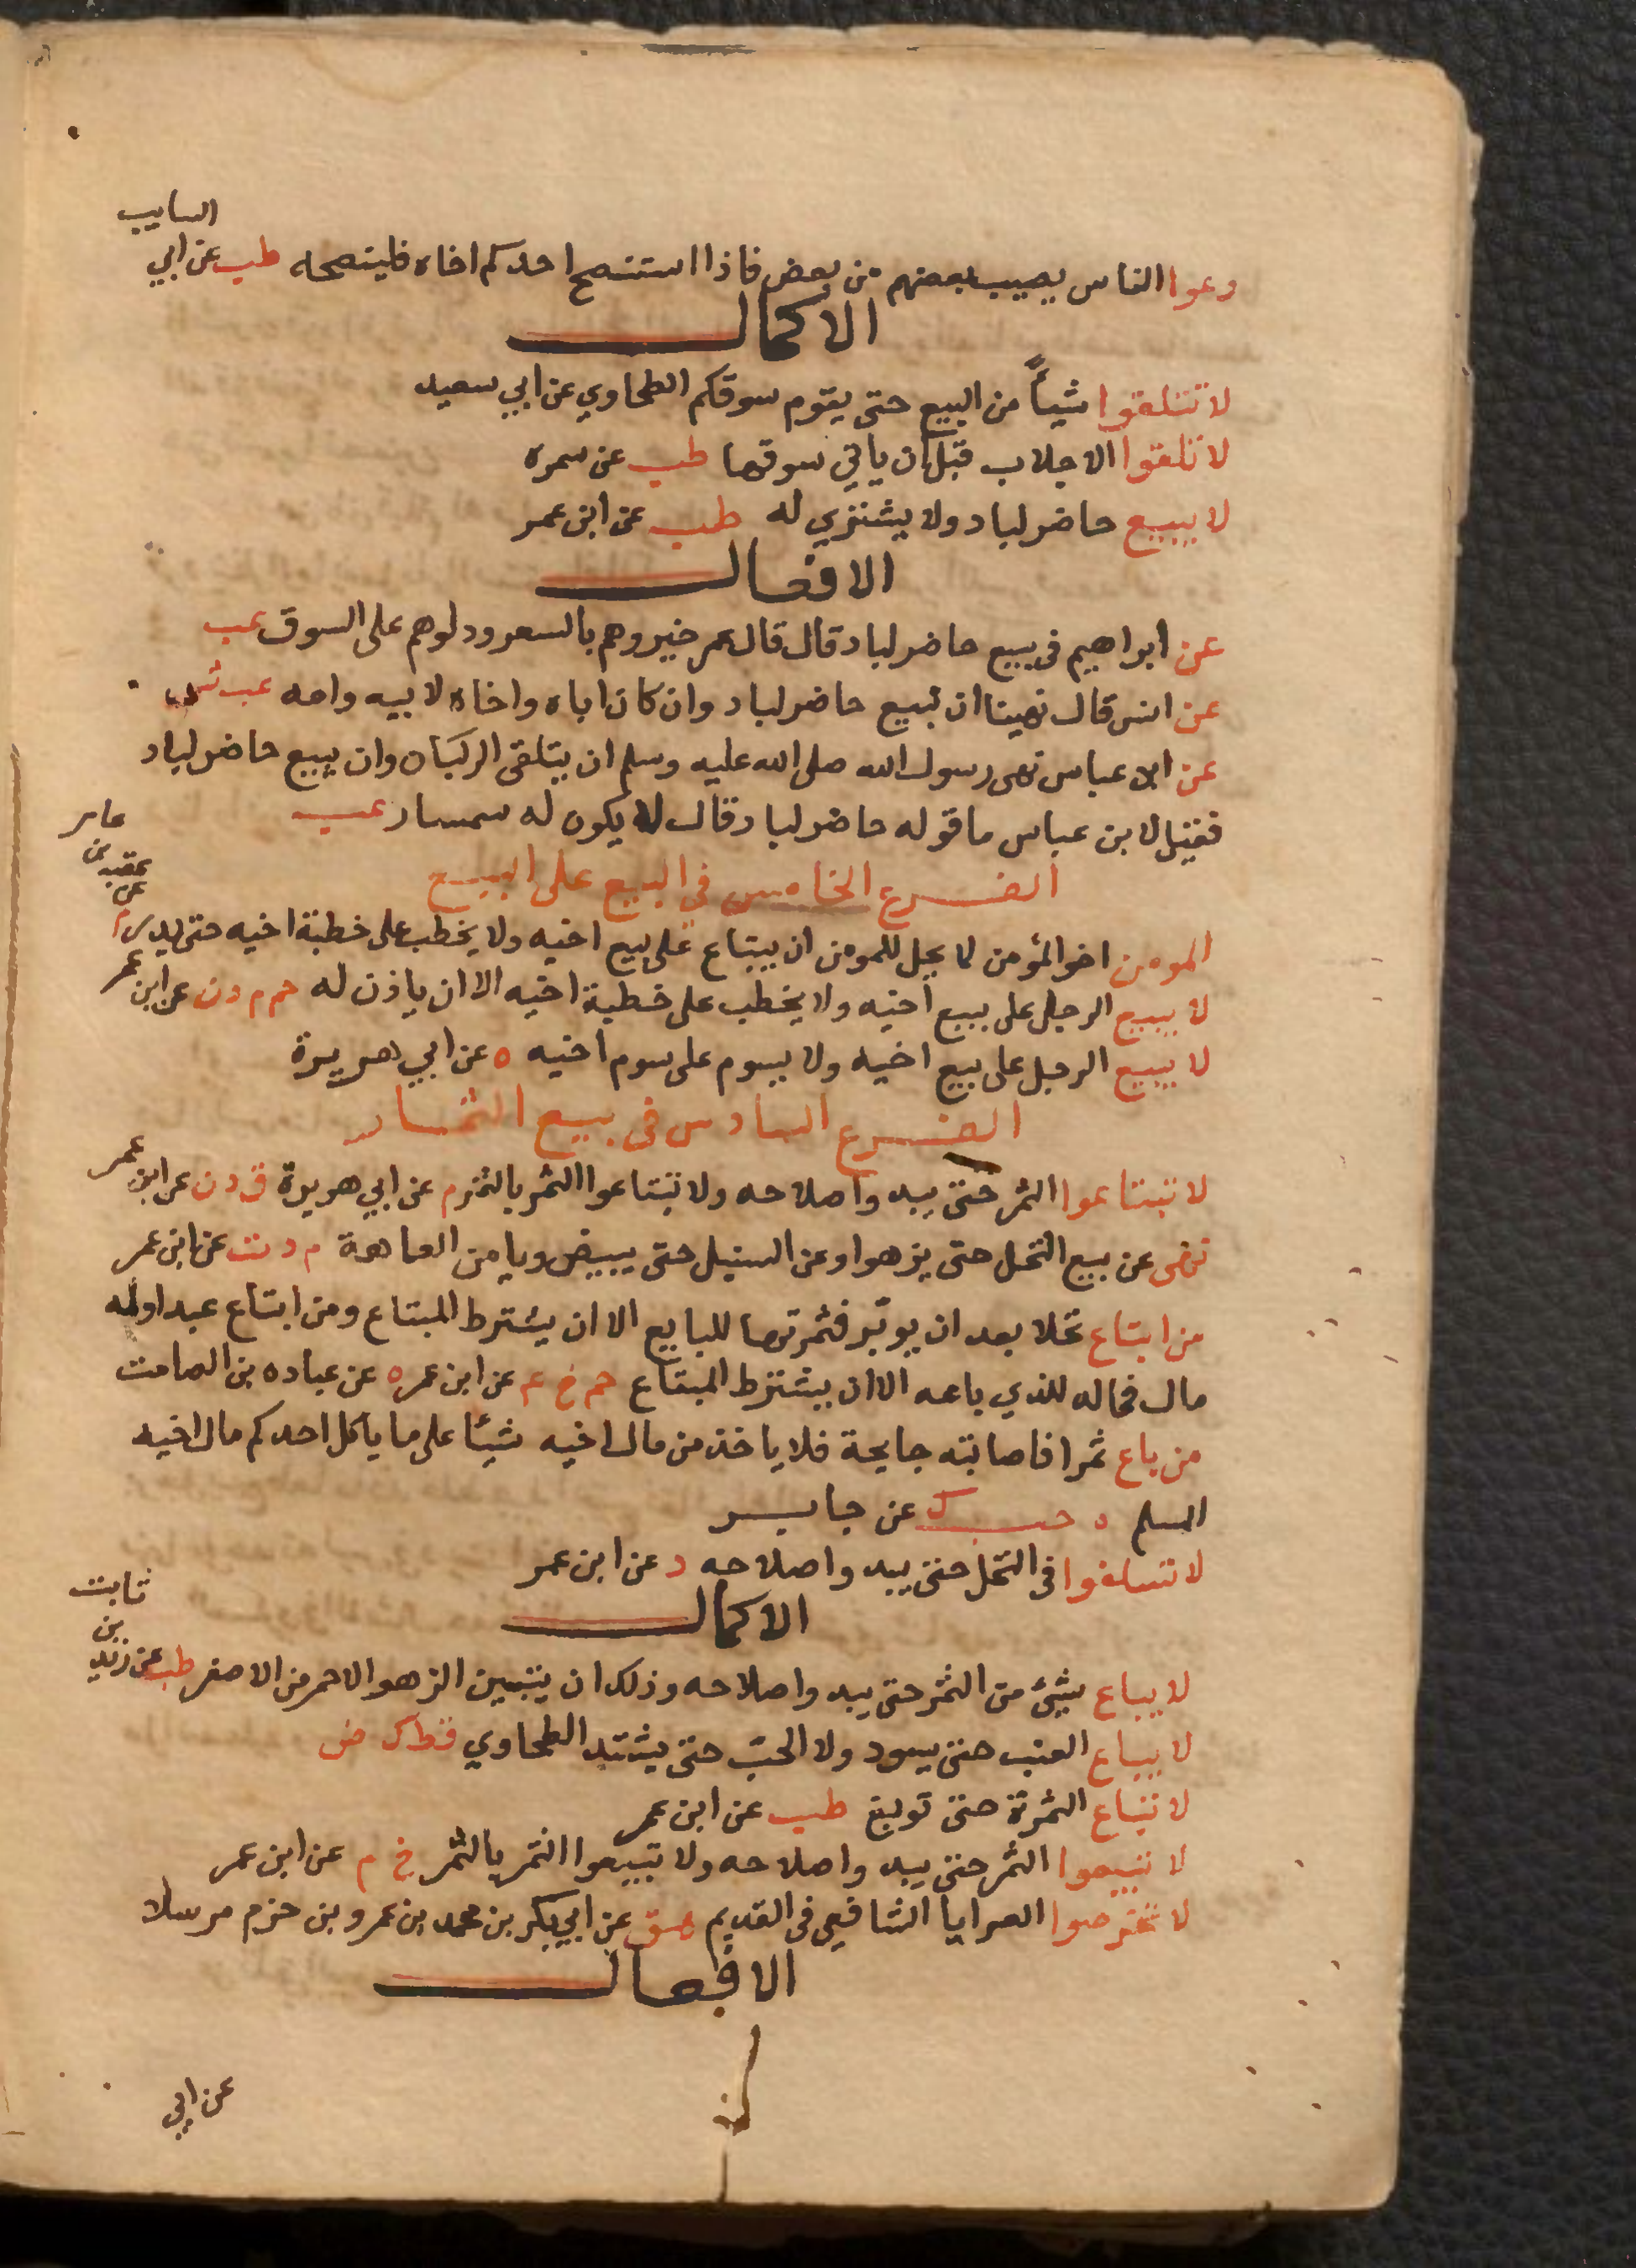 دعوا الناس يصيب بعضهم من بعض فاذا استنصح احدكم اخاه فلينصحه طب عن ابي السايب
الاكمال
لا تتلقوا شياً من البيع حتى يقوم سوقكم الطحاوي عن ابي سعيد
لا تلقوا الاجلاب قبل ان ياتي سوقها طب عن سمره
لا يبيع حاضر لباد ولا يشتري له طب عن ابن عمر
الافعال
عن ابراهيم في بيع حاضر لباد قال قال عمر خبروهم بالسعر ودلوهم على السوق عب
عن انس قال نهينا ان نبيع حاضر لباد وان كان اباه واخاه لابيه وامه عب
عن ابن عباس نهى رسول الله صلى الله عليه وسلم ان يتلقى الركبان وان يبيع حاضر لباد
فقيل لابن عباس ما قوله حاضر لباد قال لا يكون له سمسار عب
الفرع الخامس في البيع على البيع
المومن اخو المؤمن لا يحل للمومن ان يبتاع على بيع اخيه ولا يخطب على خطبة اخيه حتى يدر م عن عقبه بن عامر
لا يبيع الرجل على بيع اخيه ولا يخطب على خطبة اخيه الا ان ياذن له حم م د ن عن ابن عمر
لا يبيع الرجل على بيع اخيه ولا يسوم على سوم اخيه ه عن ابي هريرة
الفرع السادس في بيع الثمار
لا تبتاعوا الثمر حتى يبدوا صلاحه ولا تبتاعوا الثمر بالتمر م عن ابي هريرة ق د ن عن ابن عمر
نهى عن بيع النخل حتى يزهوا وعن السنبل حتى يبيض ويامن العاهة م د ت عن ابن عمر
من ابتاع نخلا بعد ان يوبر فثمرتها للبايع الا ان يشترط المبتاع ومن ابتاع عبدا وله
مال فماله للذي باعه الا ان يشترط المبتاع حم خ عم عن ابن عمر ه عن عباده بن الصامت
من باع ثمرا فاصابته جايحة فلا ياخذ من مال اخيه شيئا على ما ياكل احدكم مال اخيه
المسلم ه حب ك عن جابر
لا تسلفوا في النخل حتى يبدوا صلاحه د عن ابن عمر
الاكمال
لا يباع شيئ من الثمر حتى يبدوا صلاحه وذلك ان يتبين الزهو الاحمر من الاصفر طب عن زيد بن ثابت
لا يباع العنب حتى يسود ولا الحبّ حتى يشتد الطحاوي قط ك ض
لا تباع الثمرة حتى تونع طب عن ابن عمر
لا تبيعوا الثمر حتى يبدوا صلاحه ولا تبيعوا الثمر بالتمر خ م عن ابن عمر
لا تخرصوا العرايا الشافعي في القديم هق عن ابي بكر بن محمد بن عمرو بن حزم مرسلا
الافعال
عن ابي